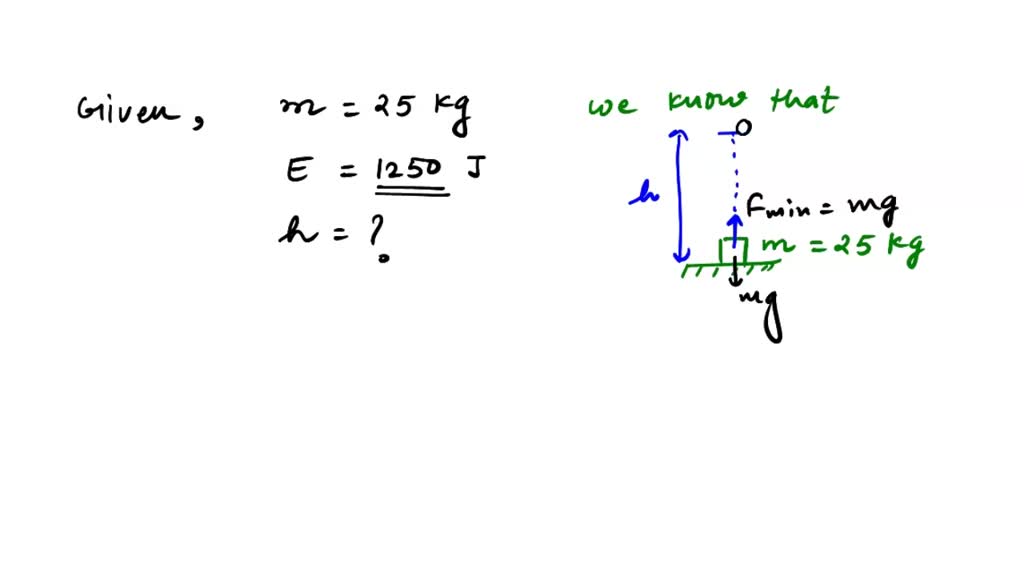 Given, m = 25 kg
E = 1250 J
h = ?
we know that
h
Fmin = mg
m = 25 kg
mg